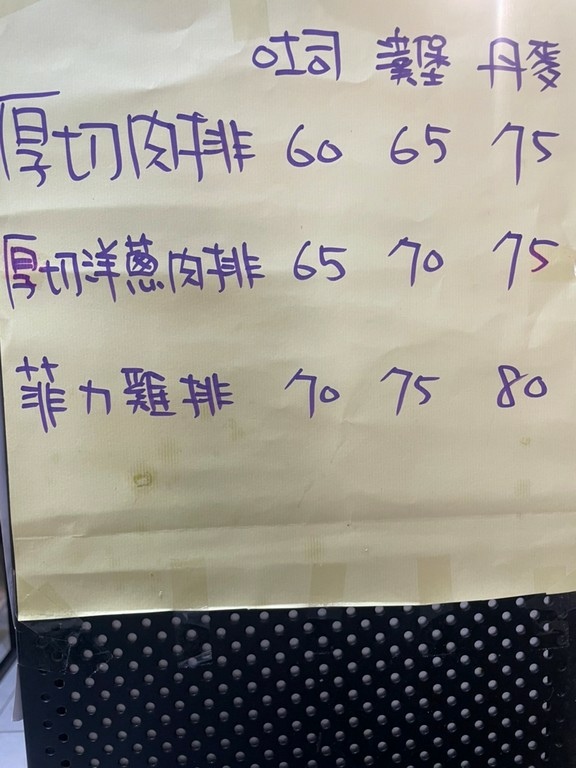 吐司 漢堡 丹麥
厚切肉排 60 65 75
厚切洋蔥肉排 65 70 75
菲力雞排 70 75 80